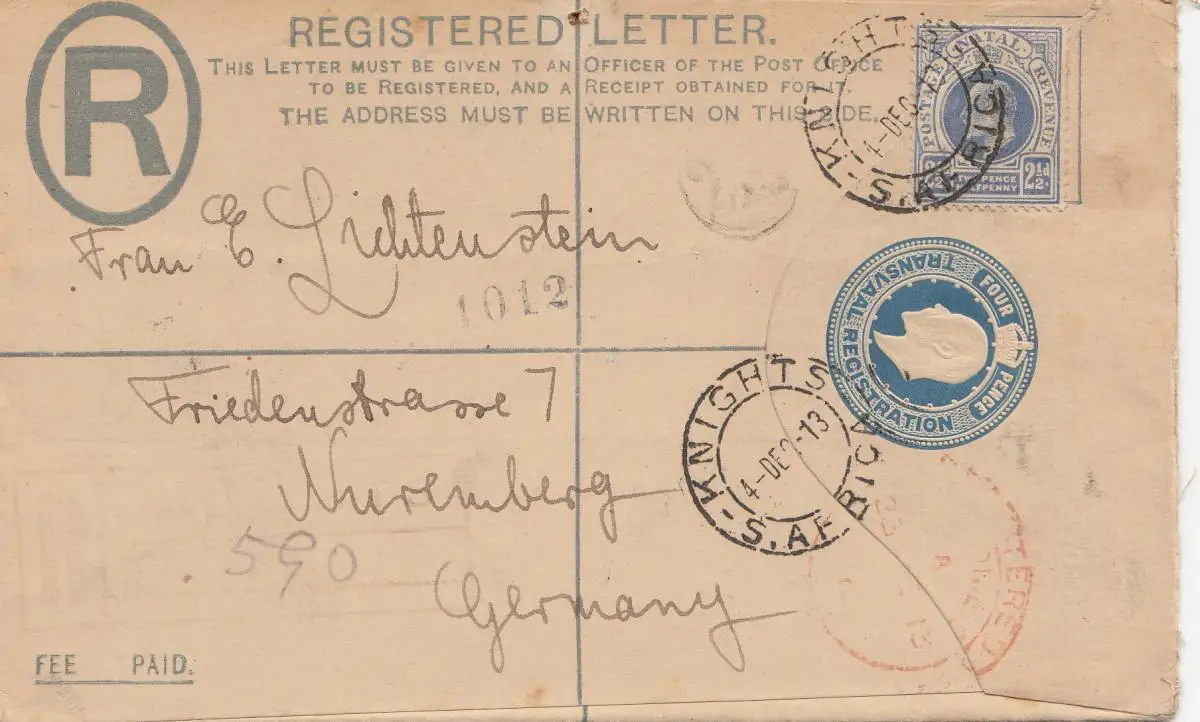 R
REGISTERED LETTER.
THIS LETTER MUST BE GIVEN TO AN OFFICER OF THE POST OFFICE
TO BE REGISTERED, AND A RECEIPT OBTAINED FOR IT.
THE ADDRESS MUST BE WRITTEN ON THIS SIDE.
POSTAGE NATAL REVENUE
TWO PENCE HALFPENNY
2½d
KNIGHTS
4-DEC-13
S. AFRICA
Frau E. Lichtenstein
1012
TRANSVAAL REGISTRATION
FOUR PENCE
Friedenstrasse 7
Nuremberg
590
Germany
KNIGHTS
4-DEC-13
S. AFRICA
FEE PAID.